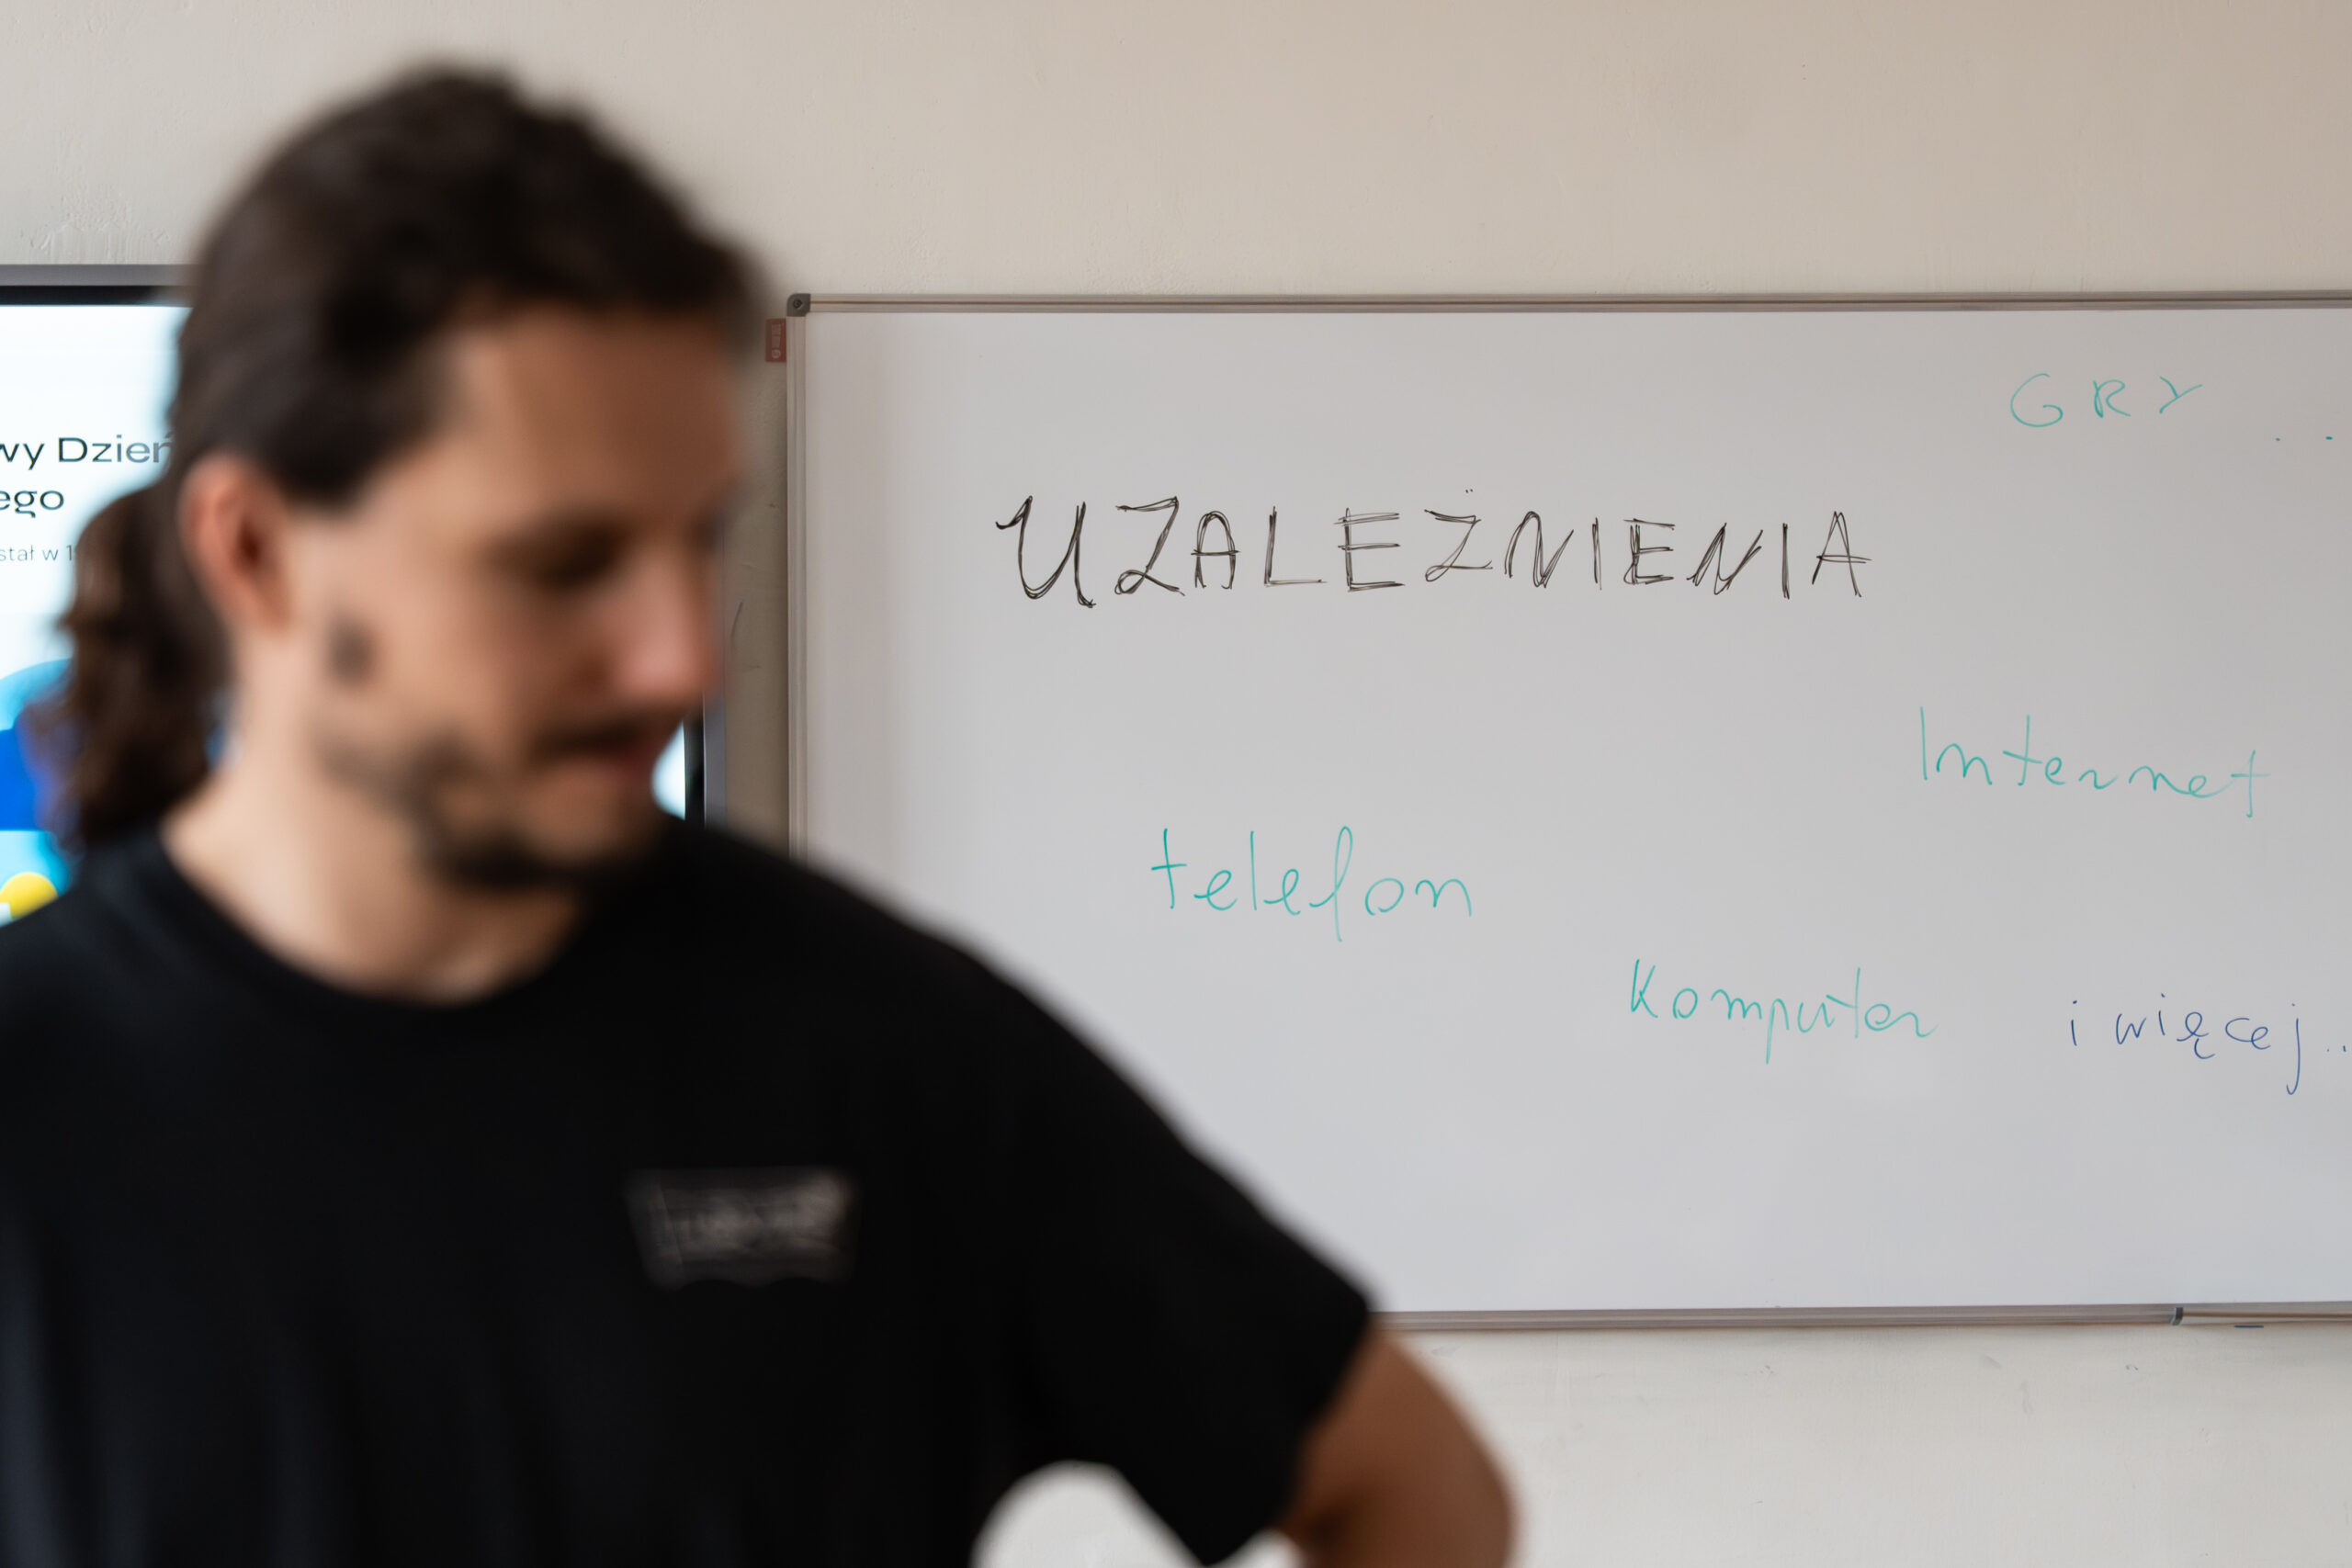 wy Dzień
ego
stał w 1
GRY ..
UZALEŻNIENIA
Internet
telefon
Komputer i więcej..